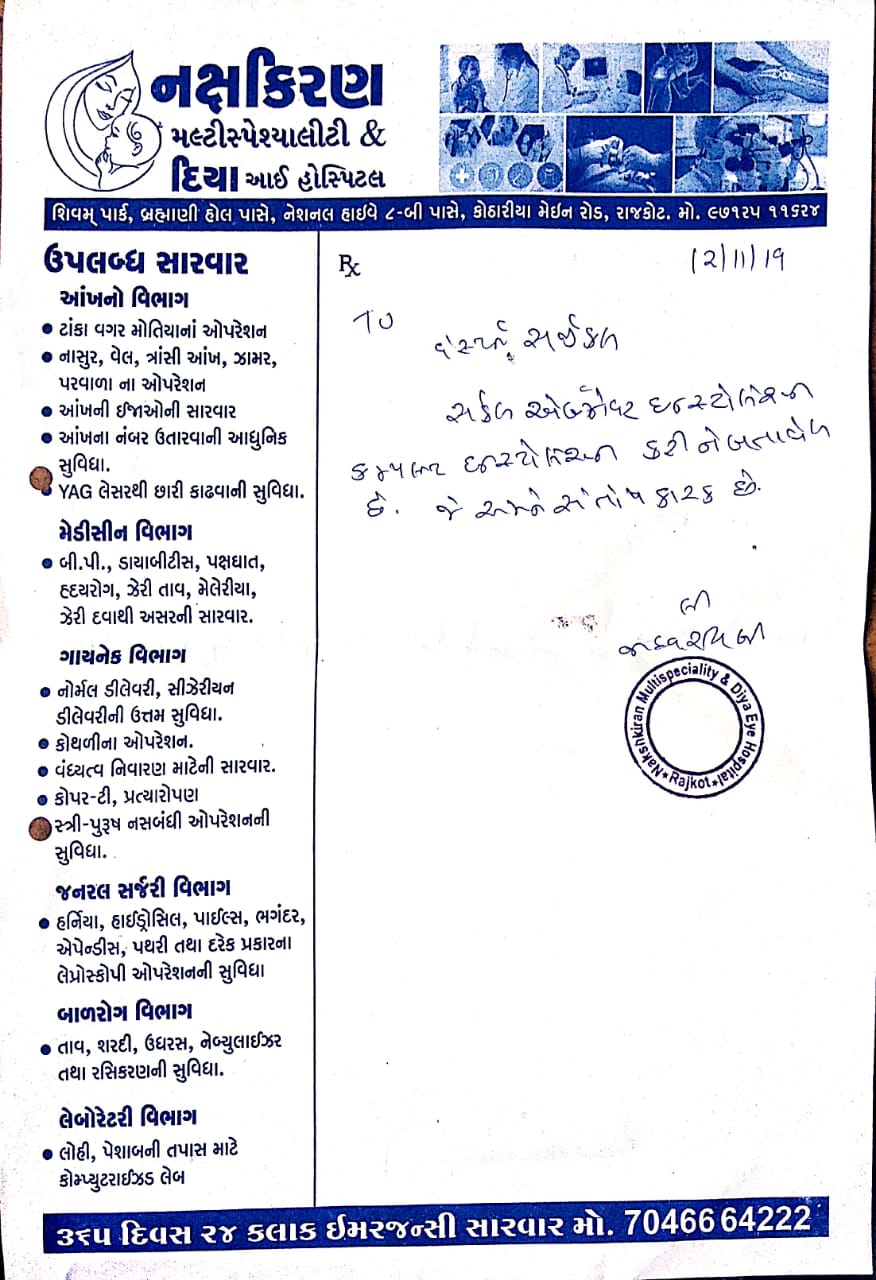 નક્ષકિરણ
મલ્ટીસ્પેશ્યાલીટી &
દિયા આઈ હોસ્પિટલ
શિવમ્ પાર્ક, બ્રહ્માણી હોલ પાસે, નેશનલ હાઈવે ૮-બી પાસે, કોઠારીયા મેઈન રોડ, રાજકોટ. મો. ૯૭૧૨૫ ૧૧૬૨૪
ઉપલબ્ધ સારવાર
આંખનો વિભાગ
• ટાંકા વગર મોતિયાનાં ઓપરેશન
• નાસુર, વેલ, ત્રાંસી આંખ, ઝામર,
પરવાળા ના ઓપરેશન
• આંખની ઈજાઓની સારવાર
• આંખના નંબર ઉતારવાની આધુનિક
સુવિધા.
• YAG લેસરથી છારી કાઢવાની સુવિધા.
મેડીસીન વિભાગ
• બી.પી., ડાયાબીટીસ, પક્ષઘાત,
હૃદયરોગ, ઝેરી તાવ, મેલેરીયા,
ઝેરી દવાથી અસરની સારવાર.
ગાયનેક વિભાગ
• નોર્મલ ડીલેવરી, સીઝેરીયન
ડીલેવરીની ઉત્તમ સુવિધા.
• કોથળીના ઓપરેશન.
• વંધ્યત્વ નિવારણ માટેની સારવાર.
• કોપર-ટી, પ્રત્યારોપણ
• સ્ત્રી-પુરૂષ નસબંધી ઓપરેશનની
સુવિધા.
જનરલ સર્જરી વિભાગ
• હર્નિયા, હાઈડ્રોસિલ, પાઈલ્સ, ભગંદર,
એપેન્ડીસ, પથરી તથા દરેક પ્રકારના
લેપ્રોસ્કોપી ઓપરેશનની સુવિધા
બાળરોગ વિભાગ
• તાવ, શરદી, ઉધરસ, નેબ્યુલાઈઝર
તથા રસિકરણની સુવિધા.
લેબોરેટરી વિભાગ
• લોહી, પેશાબની તપાસ માટે
કોમ્પ્યુટરાઈઝડ લેબ
℞
12/11/19
TO
સર્જીકલ
ઇન્સ્ટોલેશન
ઇન્સ્ટોલેશન કરી ને બતાવેલ
છે. જે અમને સંતોષ કારક છે.
Nakshkiran Multispeciality & Diya Eye Hospital
★ Rajkot ★
૩૬૫ દિવસ ૨૪ કલાક ઈમરજન્સી સારવાર મો. 70466 64222